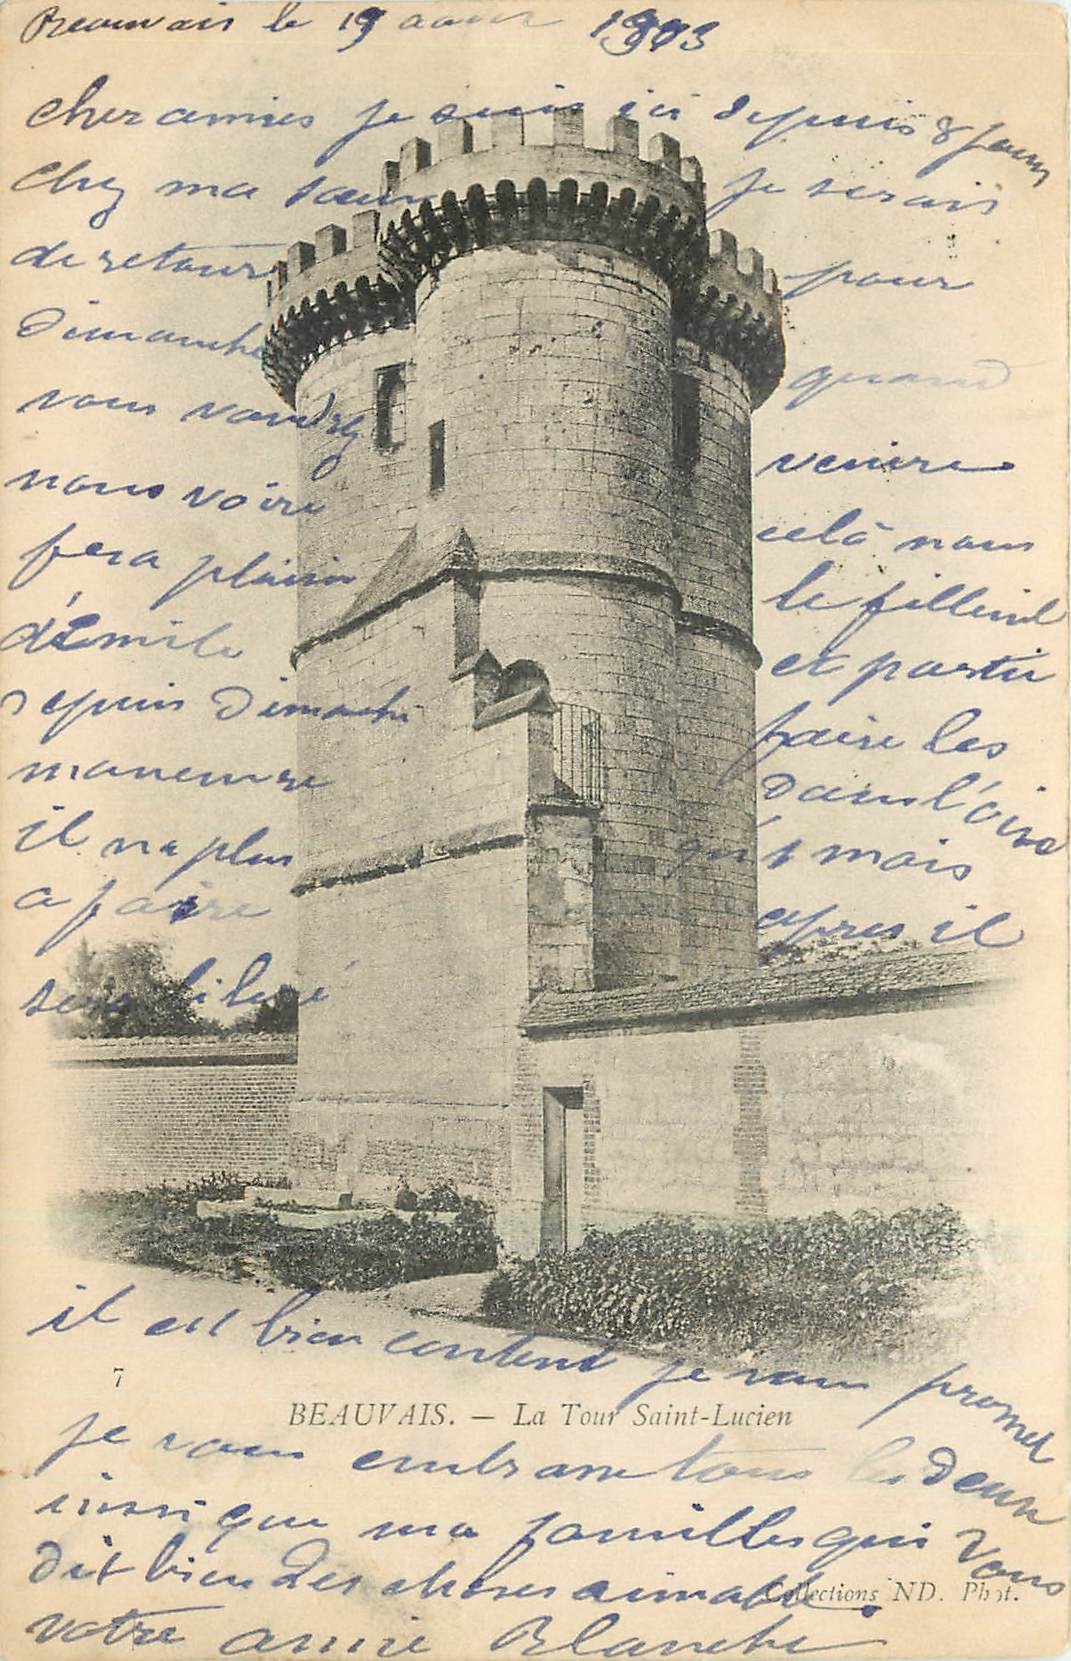 Beauvais le 19 aout 1903
cher amies je suis ici depuis 8 jours
chez ma soeur je serais
de retour pour
Dimanche quand
vous voudrez venire
nous voire celà nous
fera plaisir le filleul
démile et partir
depuis Dimache faire les
maneuvre Dans l'oise
il na plus qu'1 mois
a faire apres il
sera libéré
il est bien content je vous promet
7
BEAUVAIS. — La Tour Saint-Lucien
je vous embrasse tous les deux
insi que ma familles qui vous
dit bien des choses aimable
Collections ND. Phot.
votre amie Blanche